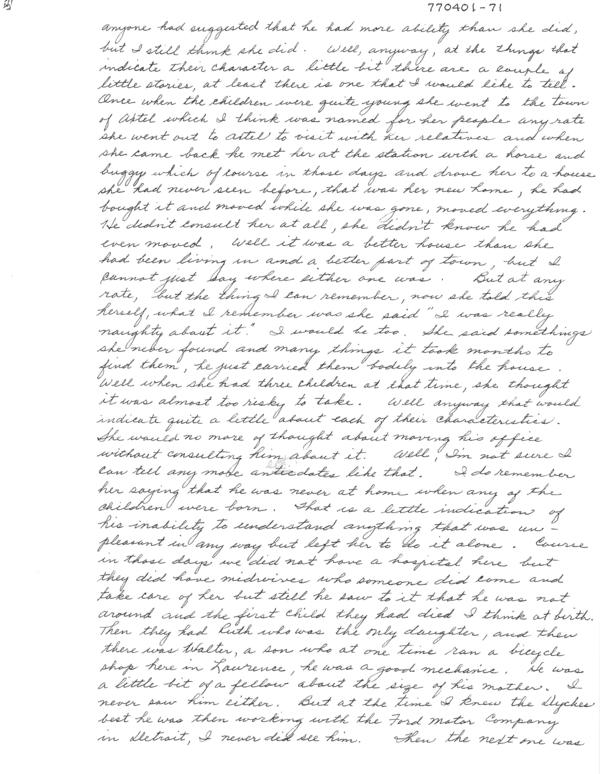 770401-71
anyone had suggested that he had more ability than she did,
but I still think she did. Well, anyway, at the things that
indicate their character a little bit there are a couple of
little stories, at least there is one that I would like to tell.
Once when the children were quite young she went to the town
of Axtel which I think was named for her people any rate
she went out to Axtel to visit with her relatives and when
she came back he met her at the station with a horse and
buggy which of course in those days and drove her to a house
she had never seen before, that was her new home, he had
bought it and moved while she was gone, moved everything.
He didn't consult her at all, she didn't know he had
even moved. Well it was a better house than she
had been living in and a better part of town, but I
cannot just say where either one was. But at any
rate, but the thing I can remember, now she told this
herself, what I remember was she said "I was really
naughty about it." I would be too. She said somethings
she never found and many things it took months to
find them, he just carried them bodily into the house.
Well when she had three children at that time, she thought
it was almost too risky to take. Well anyway that would
indicate quite a little about each of their characteristics.
She would no more of thought about moving his office
without consulting him about it. Well, I'm not sure I
can tell any more antecdates like that. I do remember
her saying that he was never at home when any of the
children were born. That is a little indication of
his inability to understand anything that was un-
pleasant in any way but left her to do it alone. Course
in those days we did not have a hospital here but
they did have midwives who someone did come and
take care of her but still he saw to it that he was not
around and the first child they had died I think at birth.
Then they had Ruth who was the only daughter, and then
there was Walter, a son who at one time ran a bicycle
shop here in Lawrence, he was a good mechanic. He was
a little bit of a fellow about the size of his mother. I
never saw him either. But at the time I knew the Dyches
best he was then working with the Ford Motor Company
in Detroit, I never did see him. Then the next one was